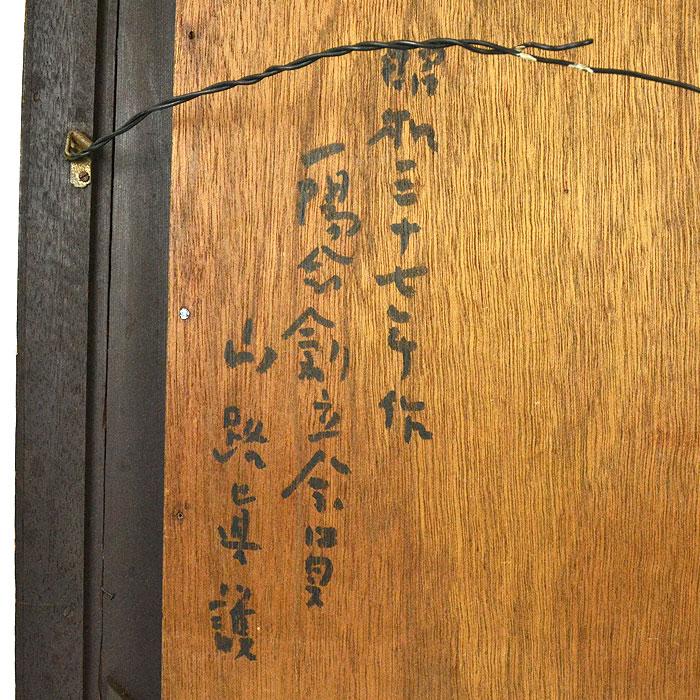 昭和三十七年作
一陽会創立会員
山路真護